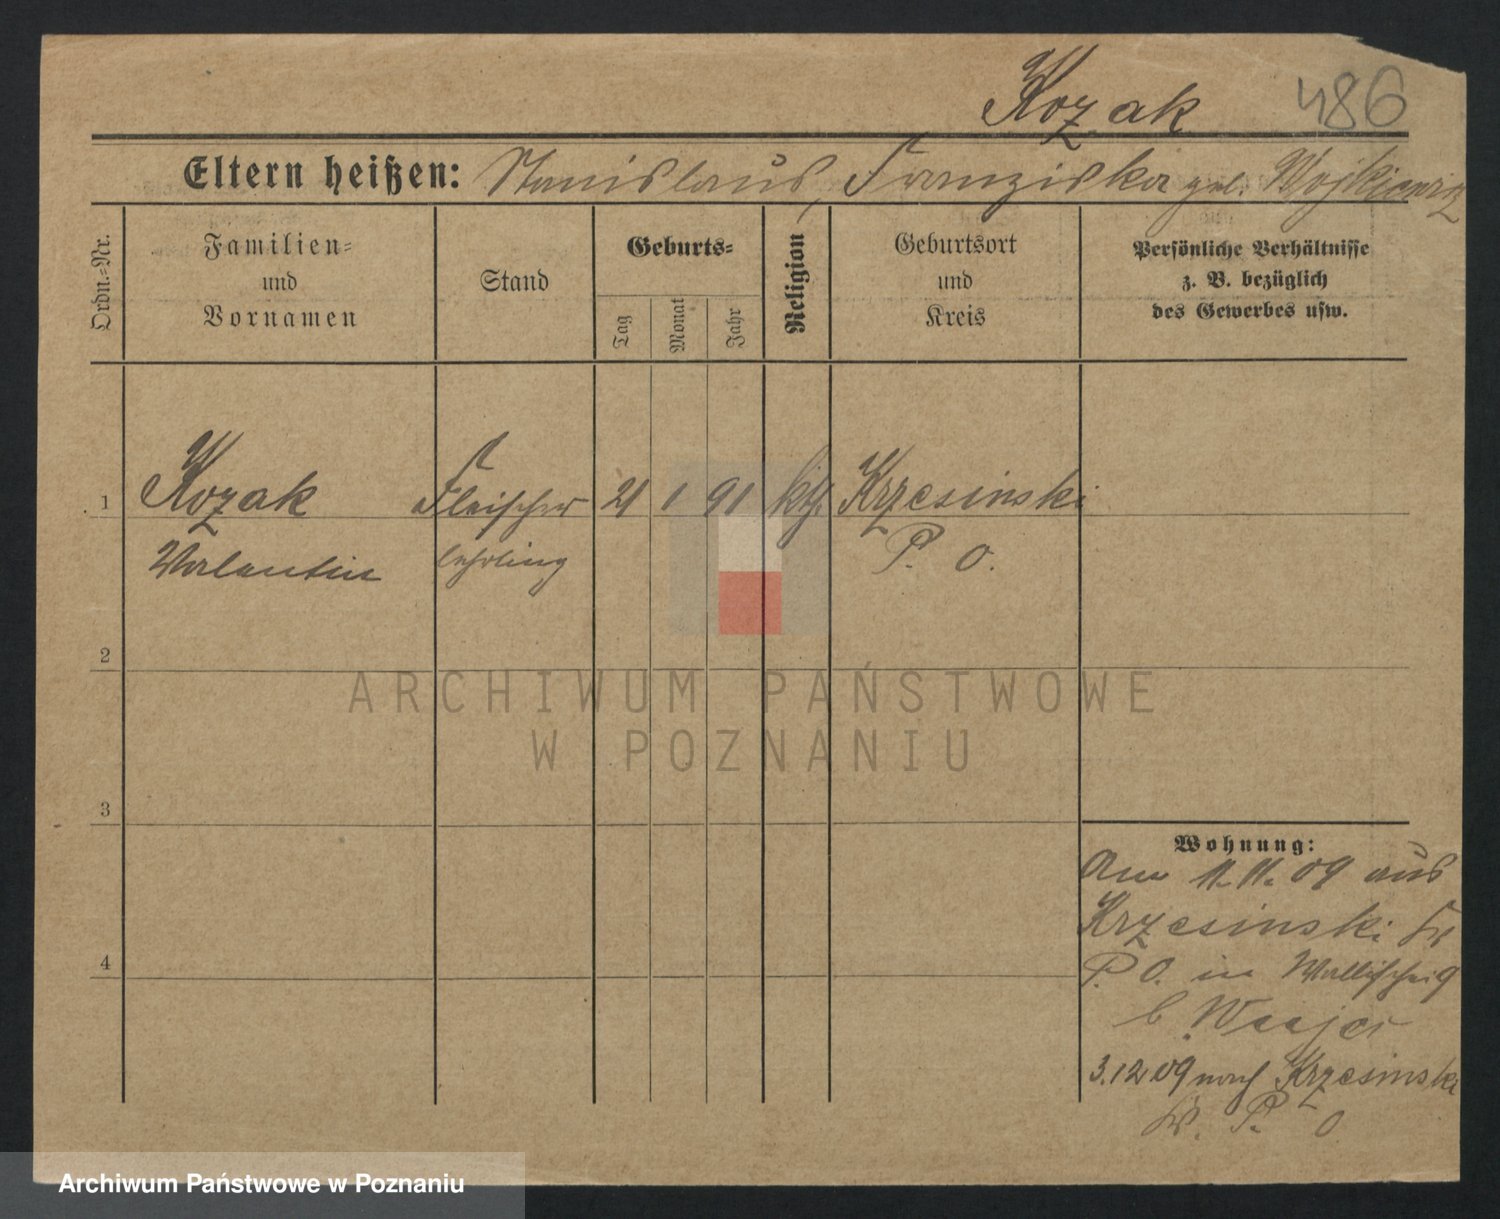 Kozak 486
Eltern heißen: Stanislaus, Franziska geb. Wojkiewicz
Ordn.=Nr.
Familien=
und
Vornamen
Stand
Geburts=
Tag
Monat
Jahr
Religion
Geburtsort
und
Kreis
Persönliche Verhältnisse
z. B. bezüglich
des Gewerbes usw.
1
Kozak Fleischer 21 1 91 kth. Krzesinski
Valentin lehrling P. O.
2
3
4
Wohnung:
Am 11.11.09 aus
Krzesinski Kr
P. O. in Wallischei 9
b.
3.12 09 nach Krzesinski
Kr. P. O
ARCHIWUM PAŃSTWOWE
W POZNANIU
Archiwum Państwowe w Poznaniu